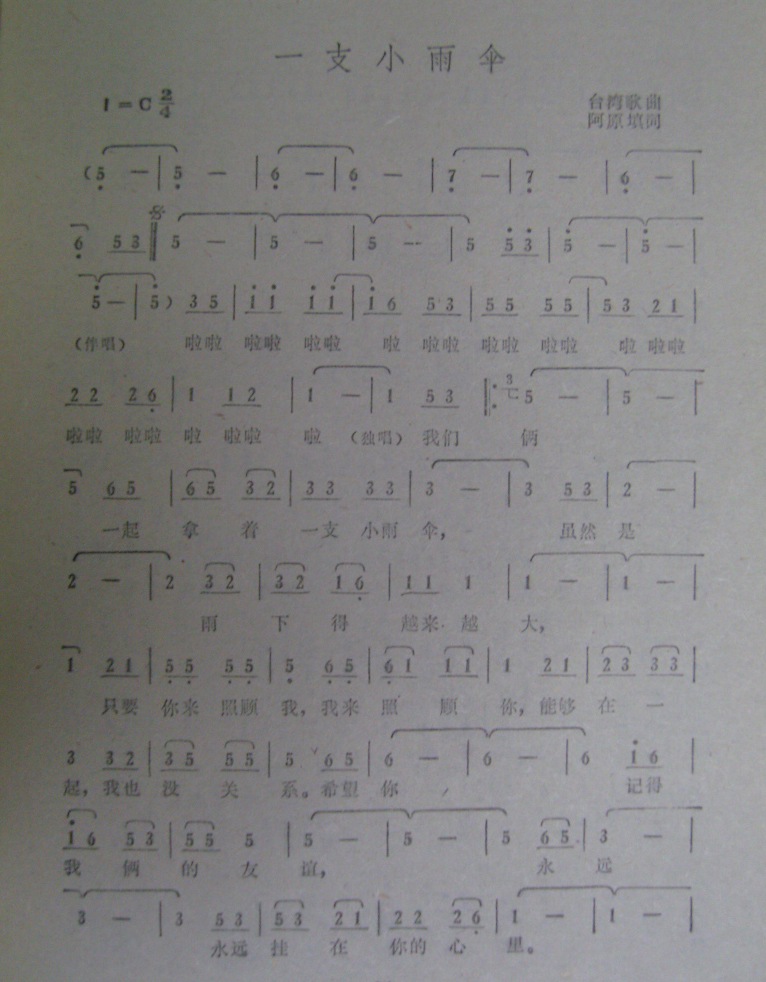 一支小雨伞
1=C 2/4
台湾歌曲
阿原填词
(5 — | 5 — | 6 — | 6 — | 7 — | 7 — | 6 — |
6 53 𝄋 5 — | 5 — | 5 — | 5 53 | 5 — | 5 — |
5 — | 5) 35 | 11 11 | 16 53 | 55 55 | 53 21 |
(伴唱) 啦啦 啦啦 啦啦 啦 啦啦 啦啦 啦啦 啦 啦啦
22 26 | 1 12 | 1 — | 1 53 ‖: 3 5 — | 5 — |
啦啦 啦啦 啦 啦啦 啦 (独唱) 我们 俩
5 65 | 65 32 | 33 33 | 3 — | 3 53 | 2 — |
一起 拿 着 一支 小雨 伞, 虽然 是
2 — | 2 32 | 32 16 | 11 1 | 1 — | 1 — |
雨 下 得 越来 越 大,
1 21 | 55 55 | 5 65 | 61 11 | 1 21 | 23 33 |
只要 你来 照顾 我, 我来 照 顾 你, 能够 在 一
3 32 | 35 55 | 5 65 | 6 — | 6 — | 6 16 |
起, 我也 没 关 系。希望 你 记得
16 53 | 55 5 | 5 — | 5 — | 5 65 | 3 — |
我 俩 的 友 谊, 永 远
3 — | 3 53 | 53 21 | 22 26 | 1 — | 1 — |
永远 挂 在 你的 心 里。